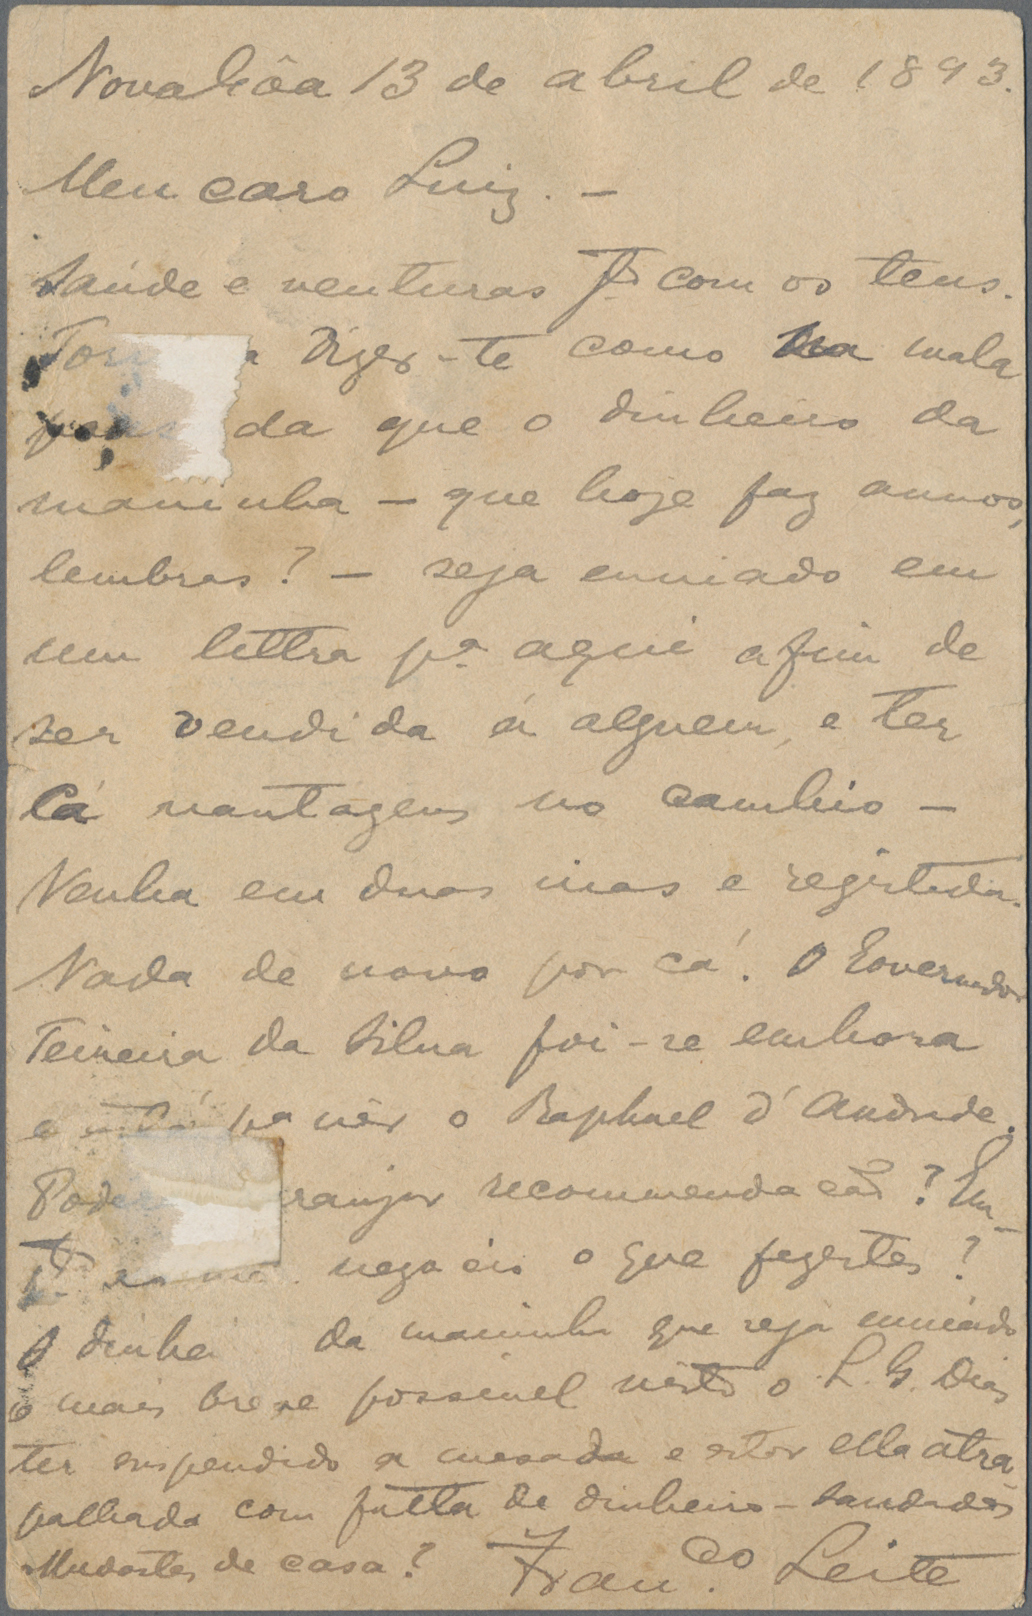 Nova Gôa 13 de abril de 1893.
Meu caro Luiz. —
Saude e venturas com os teus.
a dizer-te como na mala
da que o dinheiro da
maninha — que hoje faz annos,
lembras? — seja enviado em
um lettra pª aqui afim de
ser vendida á alguem, e ter
cá vantagens no cambio —
Venha em duas vias e registada.
Nada de novo por cá. O Governador
Teixeira da Silva foi-se embora
e pª vir o Raphael d'Andrade.
ranjar recommendação? Em
negocio o que fizestes?
O dinhei da maninha que seja enviado
o mais breve possivel visto o L. G. Dias
ter suspendido a mesada e estar ella atra
palhada com falta de dinheiro — Saudades
Mudastes de casa? Fran.co Leite